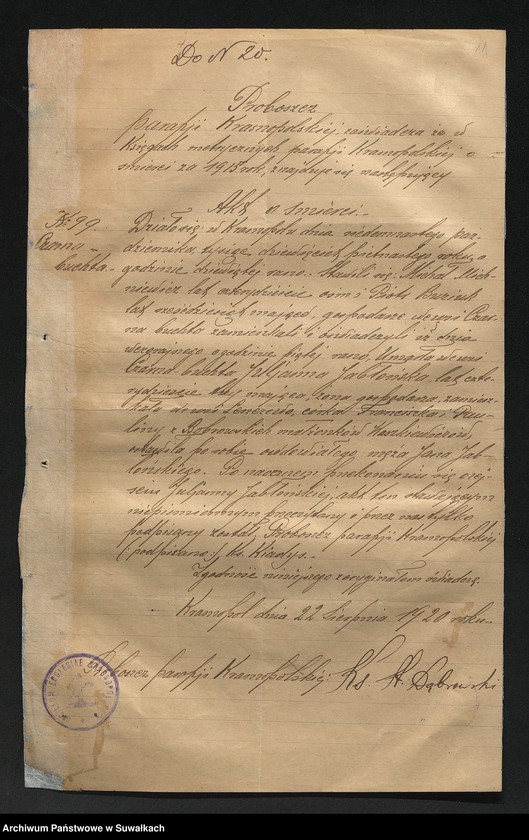 11
Do N 20.
Proboszcz
parafji Krasnopolskiej zaświadcza że w
Księgach metrycznych parafji Krasnopolskiej o
śmierci za 1915 rok, znajduje się następujący
Akt o śmierci.
N: 99
Czarna-
buchta.
Działo się w Krasnopolu dnia siedemnastego paź-
dziernika, tysiąc dziewięćset piętnastego roku, o
godzinie dziewiątej rano. Stawili się: Michał
niewicz lat czterdzieście osm i Piotr
lat sześćdziesiąt mający, gospodarze we wsi Czar-
na buchta zamieszkali i oświadczyli iż dnia
wczorajszego o godzinie piątej rano, Umarła we wsi
Czarna-buchta Juljanna Jabłońska, lat czte-
rydzieście trzy mająca, żona gospodarza, zamiesz-
kała we wsi córka Franciszka i
z Bobrowskich małżonków
po sobie owdowiałego męża Jana Jab-
łońskiego. Po naocznem przekonaniu się o zej-
ściu Juljanny Jabłońskiej, akt ten stawiającym
niepiśmiennym przeczytany i przez nas tylko
podpisany został, Proboszcz parafji Krasnopolskiej
(:podpisano:) ks.
Zgodność niniejszego z oryginałem świadczę.
Krasnopol dnia 22 Sierpnia 1920 roku
Proboszcz parafji Krasnopolskiej Ks. St. Dąbrowski
Archiwum Państwowe w Suwałkach